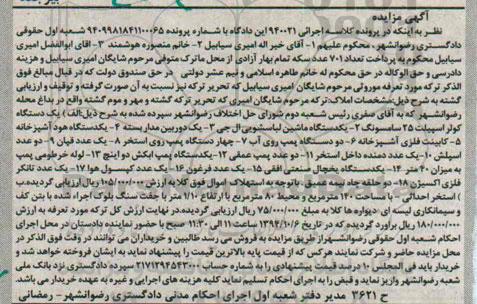 آگهی مزایده
نظر به اینکه در پرونده کلاسه اجرائی ۹۴۰۰۲۱ این دادگاه با شماره پرونده ۹۴۰۹۹۸۱۸۴۱۱۰۰۰۶۵ شعبه اول حقوقی
دادگستری رضوانشهر، محکوم علیهم ۱- آقای خیر اله امیری سیابیل ۲- خانم منصوره هوشمند ۳- آقای ابوالفضل امیری
سیابیل محکوم به پرداخت تعداد ۷۰۱ عدد سکه تمام بهار آزادی از محل ماترک متوفی مرحوم شایگان امیری سیابیل و هزینه
دادرسی و حق الوکاله در حق محکوم له خانم طاهره اسلامی و نیم عشر دولتی در حق صندوق دولت که در قبال مبالغ فوق
الذکر ترکه مورد تعرفه موروثی مرحوم شایگان امیری سیابیل که تحریر ترکه نیز نسبت به آن صورت گرفته و توقیف و ارزیابی
گشته به شرح ذیل:مشخصات املاک:ترکه مرحوم شایگان امیری که تحریر ترکه گشته و مهر و موم گشته واقع در بداغ محله
رضوانشهر که به آقای صفری رئیس شعبه دوم شورای حل اختلاف رضوانشهر سپرده شده به شرح ذیل:الف) یک دستگاه
کولر اسپیلت ۲۵ سامسونگ ۲- یکدستگاه ماشین لباسشویی ال جی ۳- یک دوربین مدار بسته ۴- یکدستگاه هود آشپزخانه
۵- کابینت فلزی آشپزخانه ۶- دو دستگاه پمپ روی آب ۷- چهار دستگاه پمپ روی استخر ۸- یک عدد قپان ۹- دو عدد
اسپلش ۱۰- یک عدد دمنده داخل استخر ۱۱- دو عدد پمپ عمقی ۱۲- یکدستگاه پمپ ابکش دو اینچ ۱۳- لوله خرطومی پمپ
به میزان ۲۰ متر ۱۴- یکدستگاه یخچال صنعتی افقی ۱۵- یک عدد فرغون ۱۶- یک عدد کپسول هوا ۱۷- یک عدد تانکر
فلزی اکسیژن ۱۸- دو حلقه چاه نیمه عمیق باتوجه به استهلاک اموال فوق کلا به ارزش ۱۰۵/۰۰۰/۰۰۰ ریال ارزیابی گردیده.ب
) استخر احداثی – با مساحت ۱۴۰ مترمربع و محیط ۸۰ مترمربع با ارتفاع ۱/۱۰ متر با جفت سنگ بلوک اجراء شده با بتن کف
و سیمانکاری لیسه ای دیواره ها کلا به مبلغ ۷۵/۰۰۰/۰۰۰ ریال ارزیابی گردیده.در نهایت ارزش کل ترکه مورد تعرفه به ارزش
۱۸۰/۰۰۰/۰۰۰ ریال برآورد گردیده که در تاریخ ۱۳۹۴/۱۰/۶ ساعت ۱۱ الی ۱۱:۳۰ صبح با حضور نماینده دادستان در محل اجرای
احکام شعبه اول حقوقی رضوانشهراز طریق مزایده به فروش می رسد طالبین و خریداران می توانند در وقت فوق الذکر در
محل مزایده حاضر و شرکت نمایند هرکس که از قیمت پایه بالاترین قیمت را پیشنهاد نماید به ایشان فروخته خواهد شد و
خریدار باید فی المجلس ۱۰ درصد قیمت پیشنهادی را به شماره حساب ۲۱۷۱۲۹۴۵۴۳۰۰۰ سپرده دادگستری نزد بانک ملی
شعبه رضوانشهر واریز نماید و قبض را به اجرای احکام تسلیم نماید کلیه هزینه های اجرایی و غیره به عهده خریدار می باشد.
ح ۳۶۲۱ مدیر دفتر شعبه اول اجرای احکام مدنی دادگستری رضوانشهر- رمضانی